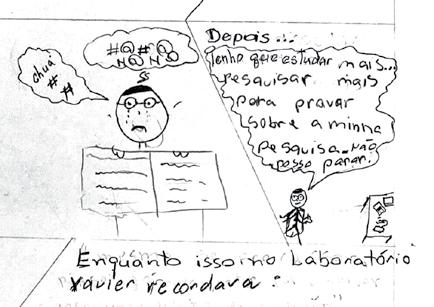 chuá
# #
#@#@
N@N@
Depois...
Tenho que estudar mais...
pesquisar mais
para provar
sobre a minha
pesquisa. Não
posso parar!
Enquanto isso no Laboratório
Xavier recordava: